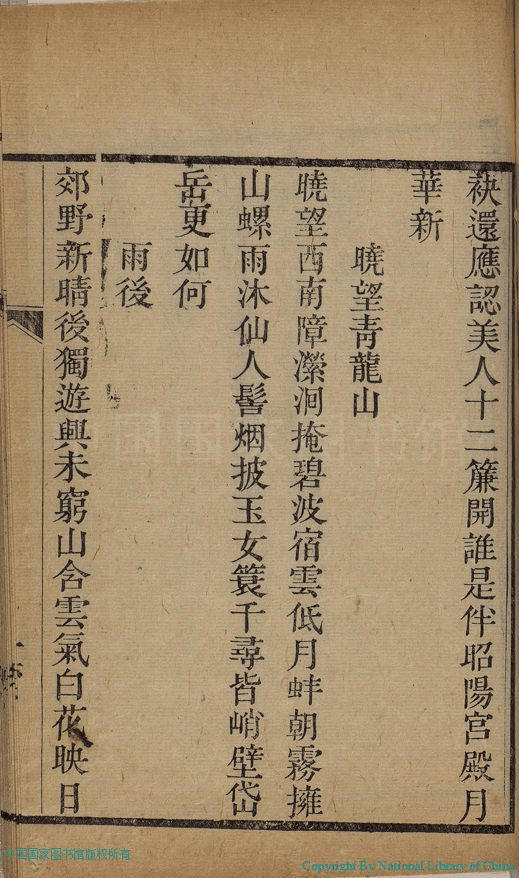 袂還應認美人十二簾開誰是伴昭陽宮殿月
華新
曉望青龍山
曉望西南障瀠洄掩碧波宿雲低月蚌朝霧擁
山螺雨沐仙人髻烟披玉女簑千尋皆峭壁岱
岳更如何
雨後
郊野新晴後獨遊興未窮山含雲氣白花映日
中国国家图书馆
一国国家图书馆版权所有
Copyright By National Library of China